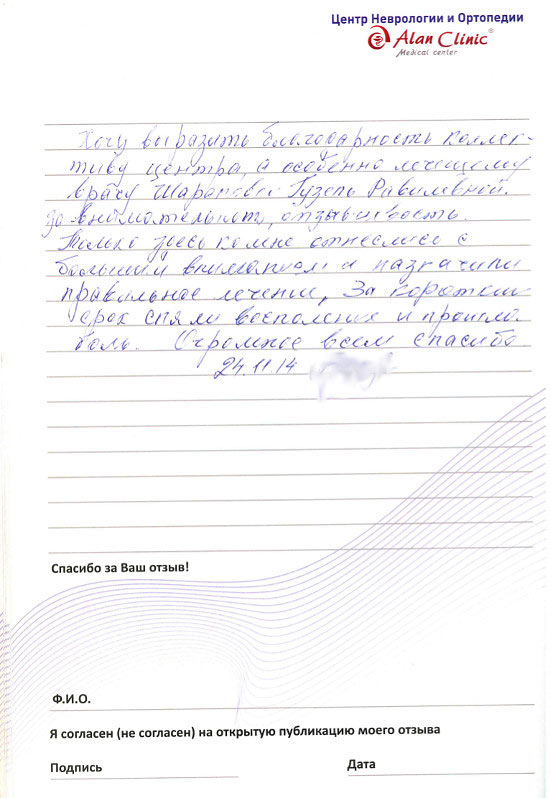 Центр Неврологии и Ортопедии
Alan Clinic®
Medical center
Хочу выразить благодарность коллек-
тиву центра, а особенно лечащему
врачу Шараповой Гузель Равилевной.
за внимательност, отзывчивость.
Только здесь ко мне отнеслись с
большим вниманием и назначили
правильное лечение, За короткий
срок сняли воспаление и прошла
боль. Огромное всем спасибо
24.11.14
Спасибо за Ваш отзыв!
Ф.И.О.
Я согласен (не согласен) на открытую публикацию моего отзыва
Подпись
Дата